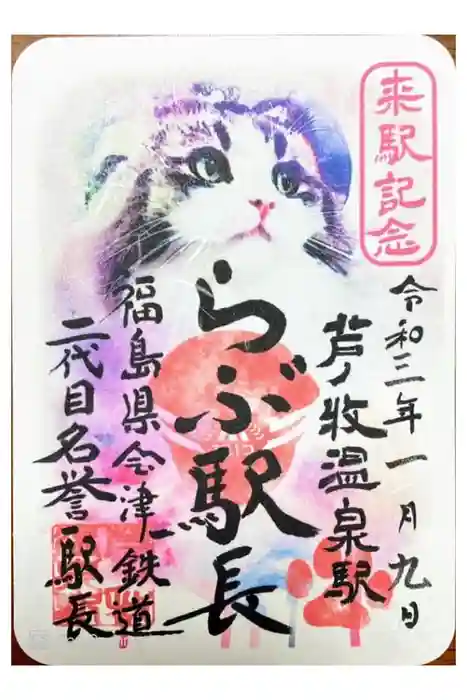 来駅記念
令和三年一月九日
芦ノ牧温泉駅
らぶ駅長
福島県会津鉄道
二代目名誉駅長